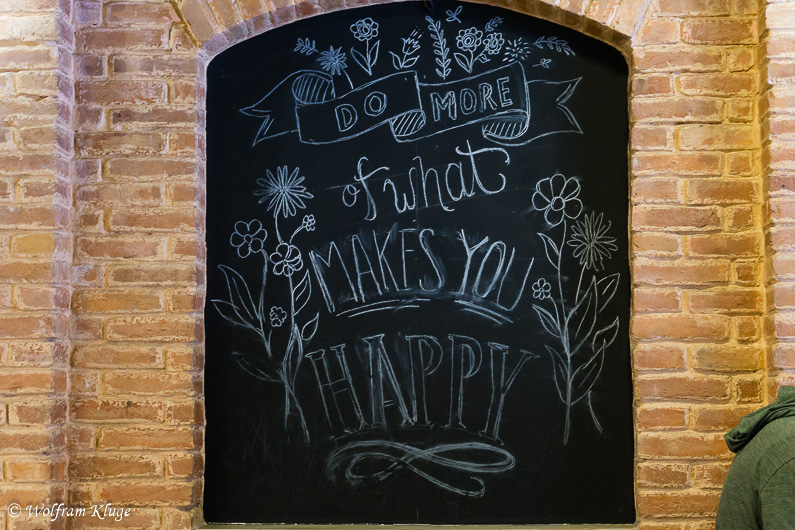 DO MORE
of what
MAKES YOU
HAPPY
© Wolfram Kluge